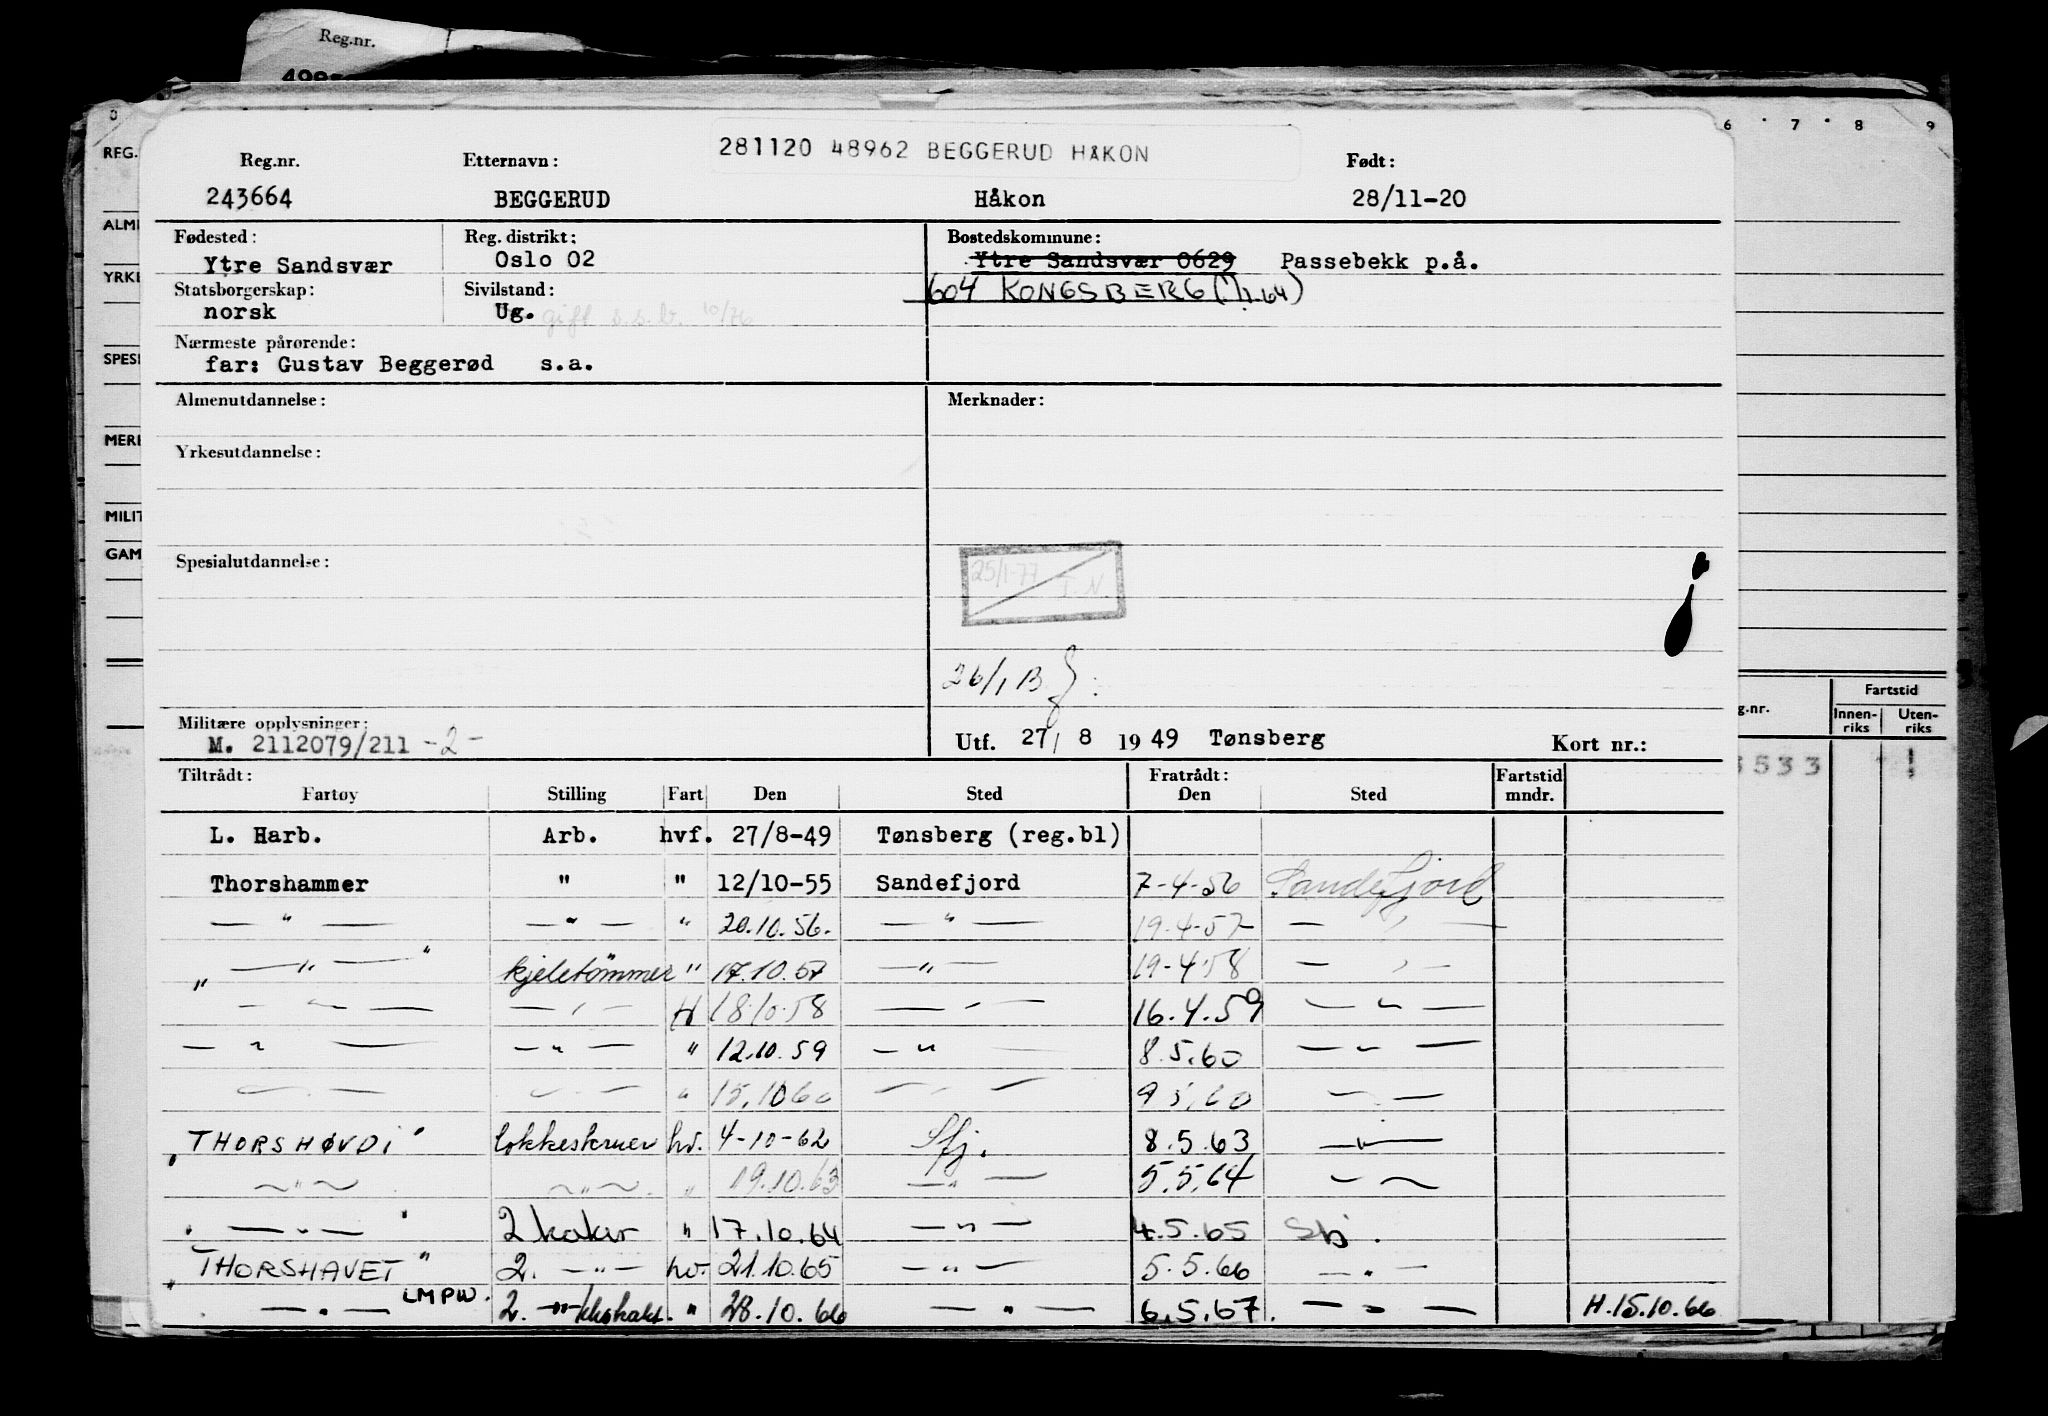 Reg.nr.
281120 48962 BEGGERUD HÅKON
Reg.nr. Etternavn: Født:
243664 BEGGERUD Håkon 28/11-20
Fødested: Reg. distrikt: Bostedskommune:
Ytre Sandsvær Oslo 02 Ytre Sandsvær 0629 Passebekk p.å.
Statsborgerskap: Sivilstand: 604 KONGSBERG (1/1-64)
norsk Ug. gift s.s.b. 10/76
Nærmeste pårørende:
far: Gustav Beggerød s.a.
Almenutdannelse: Merknader:
Yrkesutdannelse:
Spesialutdannelse:
25/1-77 I.N.
26/1 B
Militære opplysninger:
M. 2112079/211 -2- Utf. 27/8 1949 Tønsberg Kort nr.:
Tiltrådt: Fratrådt: Fartstid
Fartøy Stilling Fart Den Sted Den Sted mndr.
L. Harb. Arb. hvf. 27/8-49 Tønsberg (reg.bl)
Thorshammer " " 12/10-55 Sandefjord 7-4-56 Sandefjord
— " — — " — " 20.10.56. — " — 19-4-57 — " —
" — " — " kjeletömmer " 17.10.57 — " — 19-4-58 — " —
— " — — " — H 18.10.58 — " — 16.4.59 — " —
— " — — " — " 12.10.59 — " — 8.5.60 — " —
— " — — " — " 15.10 60 — " — 9 5.60 — " —
"THORSHØVDI" lokkeskruer hv. 4-10-62 Sfj. 8.5.63 — " —
— " — — " — " 19.10.63 — " — 5.5.64 — " —
" — " — " 2 kokar " 17.10.64 — " — 4.5.65
"THORSHAVET" 2. — " — hv. 21.10.65 — " — 5.5.66 — " —
— " — LMPW. 2. — " — " 28.10.66 — " — 6.5.67. — " — H.15.10.66
REG.
ALME
YRKE
SPESI
MERK
MILIT
GAM
6 7 8 9
g.nr. Fartstid
Innen-riks Uten-riks
3533